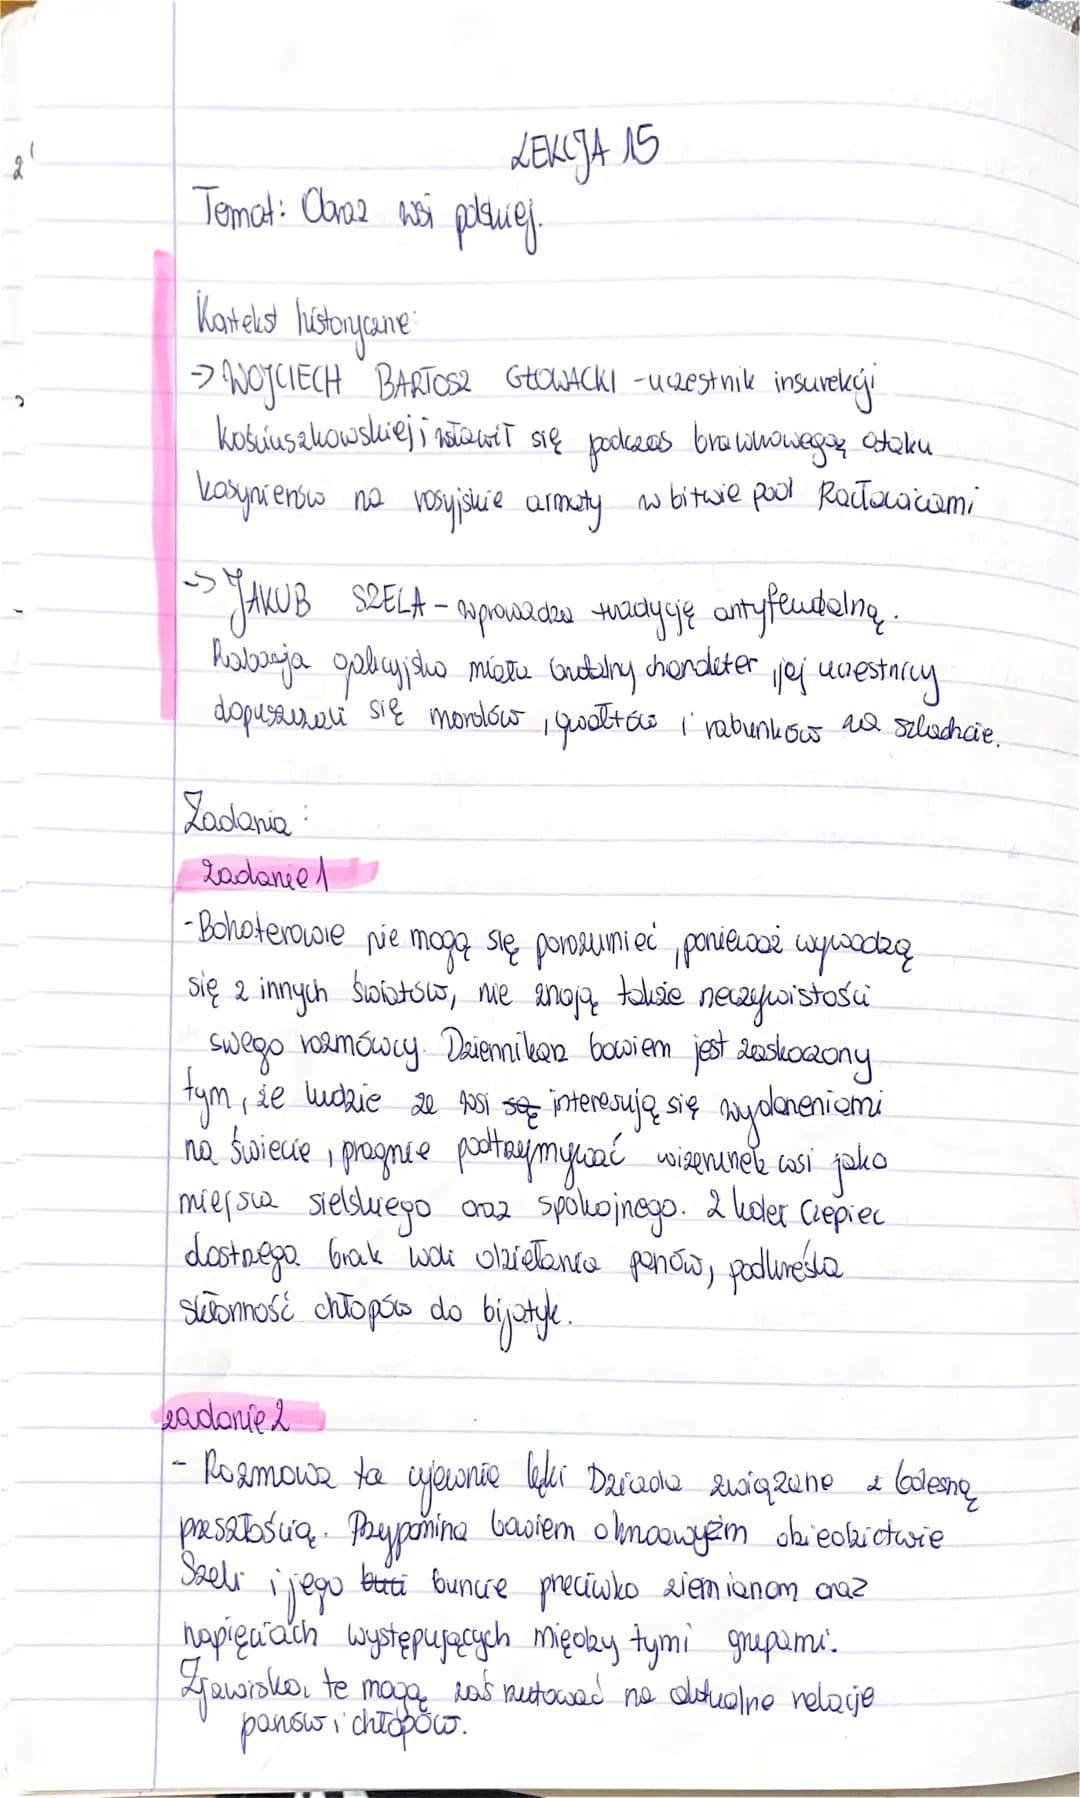 LEKCJA 15
Temat: Obraz wsi polskiej.
Kontekst historyczne:
→ WOJCIECH BARTOSZ GŁOWACKI - uczestnik insurekcji
kościuszkowskiej; wsławił się podczas brawurowego ataku
kosynierów na rosyjskie armaty w bitwie pod Racławicami
→ JAKUB SZELA - wprowadza tradycję antyfeudalną.
Rabacja galicyjska miała brutalny charakter, jej uczestnicy
dopuszczali się mordów, gwałtów i rabunków na szlachcie.
Zadania:
zadanie 1
- Bohaterowie nie mogą się porozumieć, ponieważ wywodzą
się z innych światów, nie znają także rzeczywistości
swego rozmówcy. Dziennikarz bowiem jest zaskoczony
tym, że ludzie ze wsi są interesują się wydarzeniami
na świecie, pragnie podtrzymywać wizerunek wsi jako
miejsca sielskiego oraz spokojnego. Z kolei Czepiec
dostrzega brak woli działania panów, podkreśla
skłonność chłopów do bijatyk.
zadanie 2
- Rozmowa ta ujawnia lęki Dziada związane z bolesną
przeszłością. Przypomina bowiem o krwawym
Szeli i jego buncie przeciwko ziemianom oraz
napięciach występujących między tymi grupami.
Zjawiska te mogą zaś rzutować na aktualne relacje
panów i chłopów.